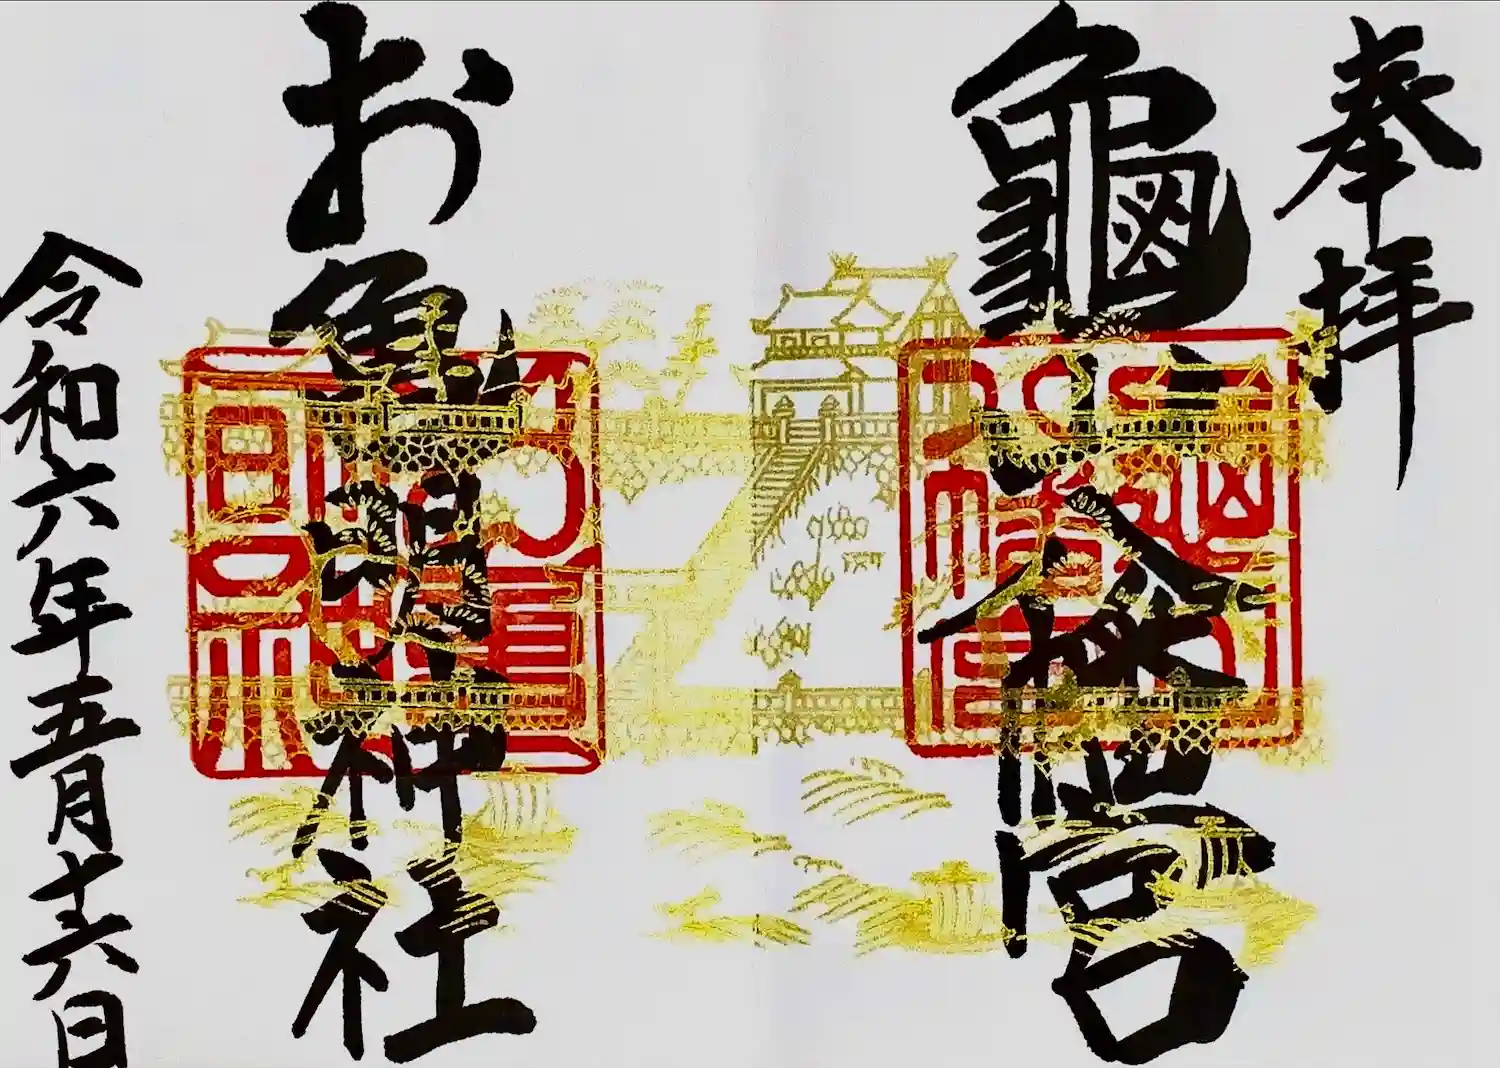 奉拝
龜山八幡宮
お亀明神社
令和六年五月十六日